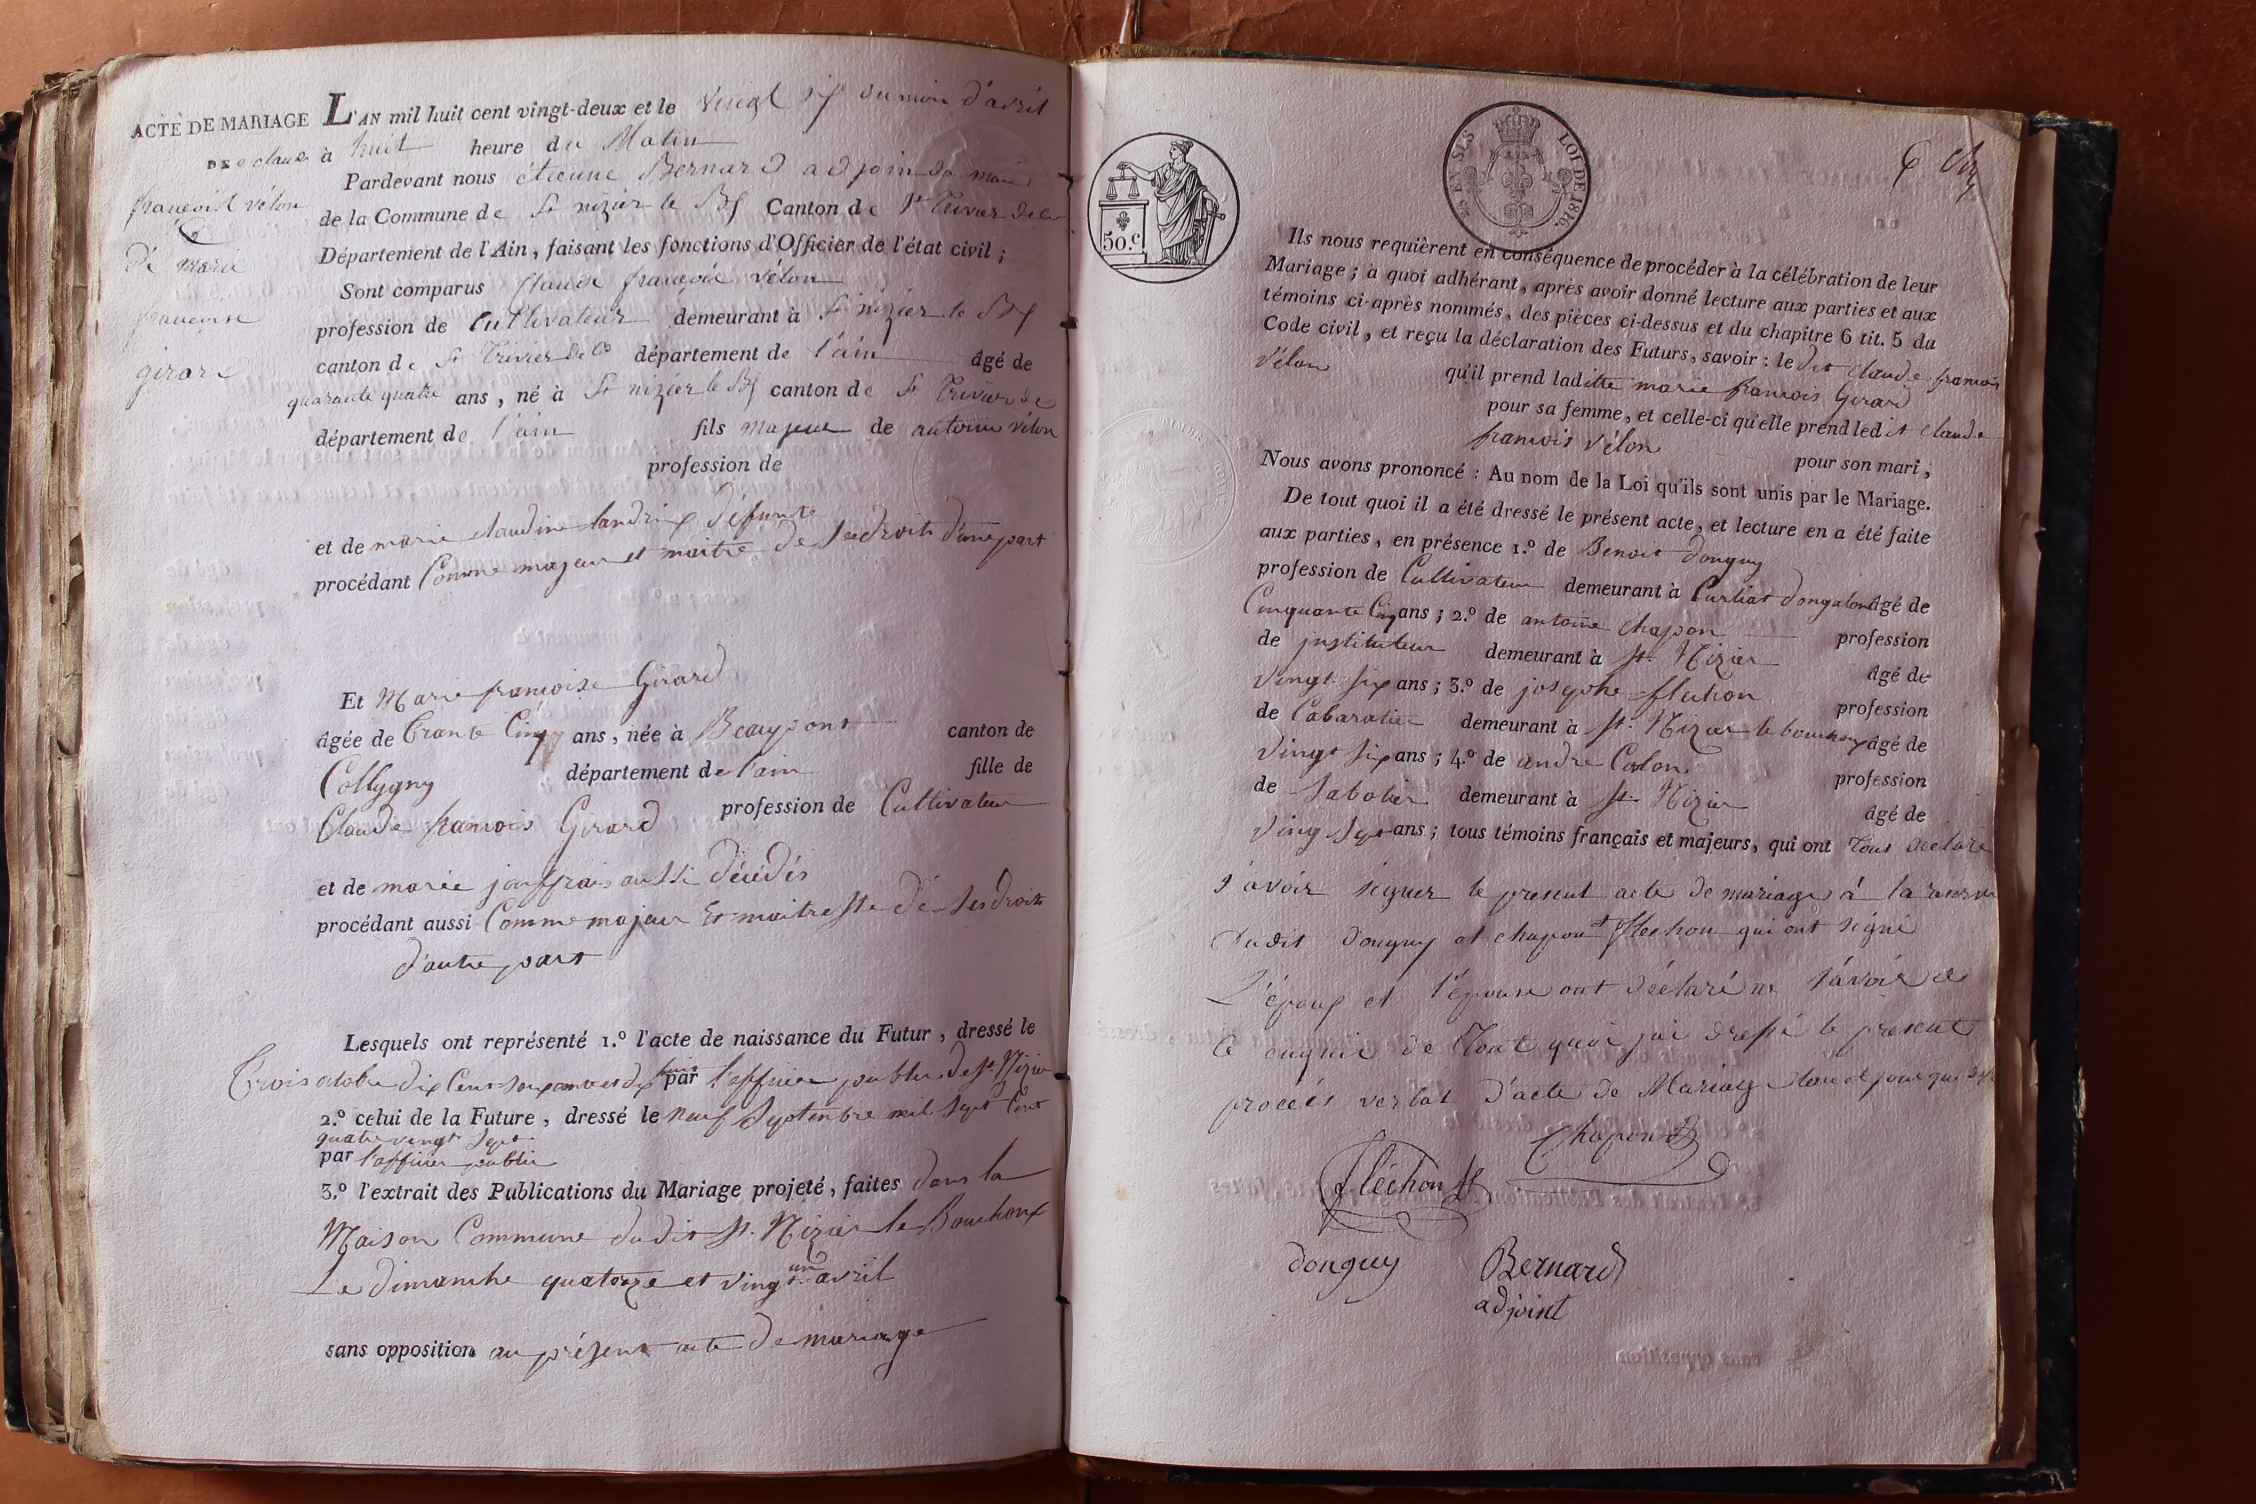 ACTE DE MARIAGE
DE claude
françois vélon
de marie
françoise
girard
L'AN mil huit cent vingt-deux et le vingt six du mois d'avril
à huit heure du Matin
Pardevant nous étienne Bernard adjoin de maire
de la Commune de St nizier le Bx Canton de St Trivier de Co
Département de l'Ain, faisant les fonctions d'Officier de l'état civil ;
Sont comparus Claude françois vélon
profession de Cultivateur demeurant à St nizier le Bx
canton de St Trivier de Co département de l'ain âgé de
quarante quatre ans, né à St nizier le Bx canton de St Trivier de
département de l'ain fils majeur de antoine vélon
profession de
et de marie claudine landrix défunts
procédant Comme majeur et maitre de ses droits d'une part
Et Marie françoise Girard
âgée de Trante Cinq ans, née à Beaupont canton de
Collygny département de l'ain fille de
Claude francois Girard profession de Cultivateur
et de marie jouffrais aussi décédés
procédant aussi Comme majeur Et maitresse de ses droits
d'autre part
Lesquels ont représenté 1.º l'acte de naissance du Futur, dressé le
Trois octobre dix Cent soixante et dix huit par l'officier public de St Nizier
2.º celui de la Future, dressé le neuf Septembre mil Sept Cent
quatre vingt Sept
par l'officier public
3.º l'extrait des Publications du Mariage projeté, faites dans la
Maison Commune dudit St. Nizier le Bouchoux
Le dimanche quatorze et vingt un avril
sans opposition au présent acte de mariage
50.c
EN SUS
LOI DE 1816.
6
Ils nous requièrent en conséquence de procéder à la célébration de leur
Mariage ; à quoi adhérant, après avoir donné lecture aux parties et aux
témoins ci-après nommés, des pièces ci-dessus et du chapitre 6 tit. 5 du
Code civil, et reçu la déclaration des Futurs, savoir : le dit claude francois
Vélon qu'il prend laditte marie francois Girard
pour sa femme, et celle-ci qu'elle prend ledit claude
francois Vélon pour son mari ;
Nous avons prononcé : Au nom de la Loi qu'ils sont unis par le Mariage.
De tout quoi il a été dressé le présent acte, et lecture en a été faite
aux parties, en présence 1.º de Benoit donguy
profession de Cultivateur demeurant à Curtiat dongalon âgé de
Cinquante Cinq ans ; 2.º de antoine chapon profession
de instituteur demeurant à St. Nizier âgé de
Vingt Six ans ; 3.º de josephe flechon profession
de Cabaratier demeurant à St. Nizier le bouchoux âgé de
Vingt Six ans ; 4.º de andre Colon profession
de Sabotier demeurant à St Nizier âgé de
Ving Sept ans ; tous témoins français et majeurs, qui ont tous déclaré
savoir signer le present acte de mariage à la reserve
dudit donguy et chapon et flechon qui ont signé
L'époux et l'épouse ont déclaré ne savoir
de Tout quoi jai dressé le présent
procès verbal d'acte de Mariage
Chapon
Fléchon
donguy
Bernard
adjoint